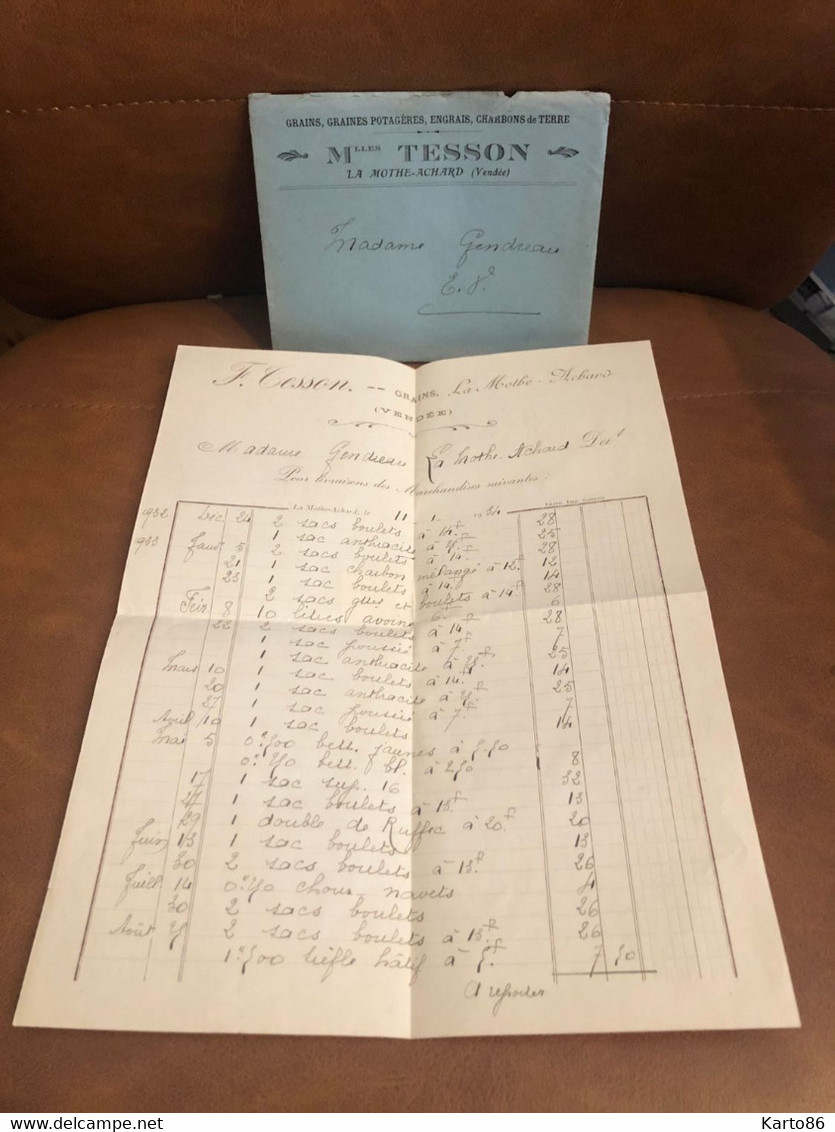 GRAINS, GRAINES POTAGÈRES, ENGRAIS, CHARBONS de TERRE
Mlles TESSON
LA MOTHE-ACHARD (Vendée)
Madame Gendreau
E.V.
F. Tesson. -- GRAINS, La Mothe-Achard
(VENDÉE)
Madame Gendreau La Mothe-Achard Doit
Pour livraisons des Marchandises suivantes :
La Mothe-Achard, le 11 1 1934
1932 Déc 24 2 sacs boulets à 14f 28
1933 Janv 5 1 sac anthracite à 25f 25
2 sacs boulets à 14 28
21 1 sac charbon mélangé à 12f 12
23 1 sac boulets à 14f 14
2 sacs et boulets à 14f 28
Fév 8 10 litres avoine 6f 6
22 2 sacs boulets à 14f 28
1 sac poussié à 7f 7
1 sac anthracite à 25f 25
Mars 10 1 sac boulets à 14f 14
20 1 sac anthracite à 25f 25
27 1 sac poussié à 7f 7
Avril 10 1 sac boulets 14
Mai 5 0k500 bett. jaunes à
bett. bl. à 8
17 1 sac sup. 16 32
27 1 sac boulets à 13f 13
29 1 double de Ruffec à 20f 20
Juin 13 1 sac boulets 13
30 2 sacs boulets à 13f 26
Juill 14 choux-navets 4
30 2 sacs boulets 26
Août 25 2 sacs boulets à 13f 26
1k500 trèfle hâtif à 5f 7 50
A reporter
delcampe.net
Karto86